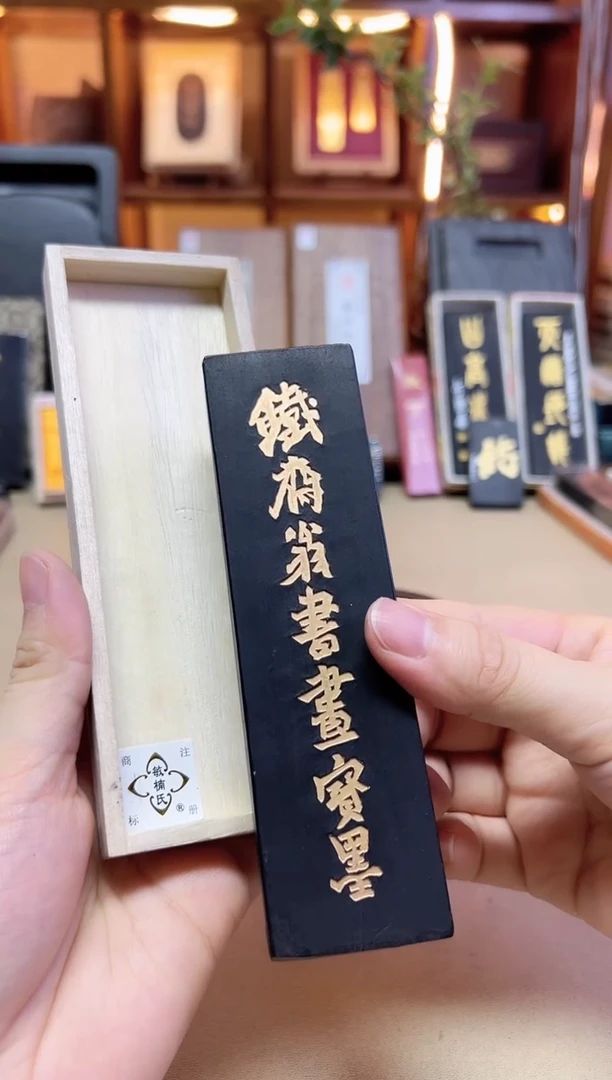 鐵齋翁書畫寶墨
注册商标
敏楠氏®